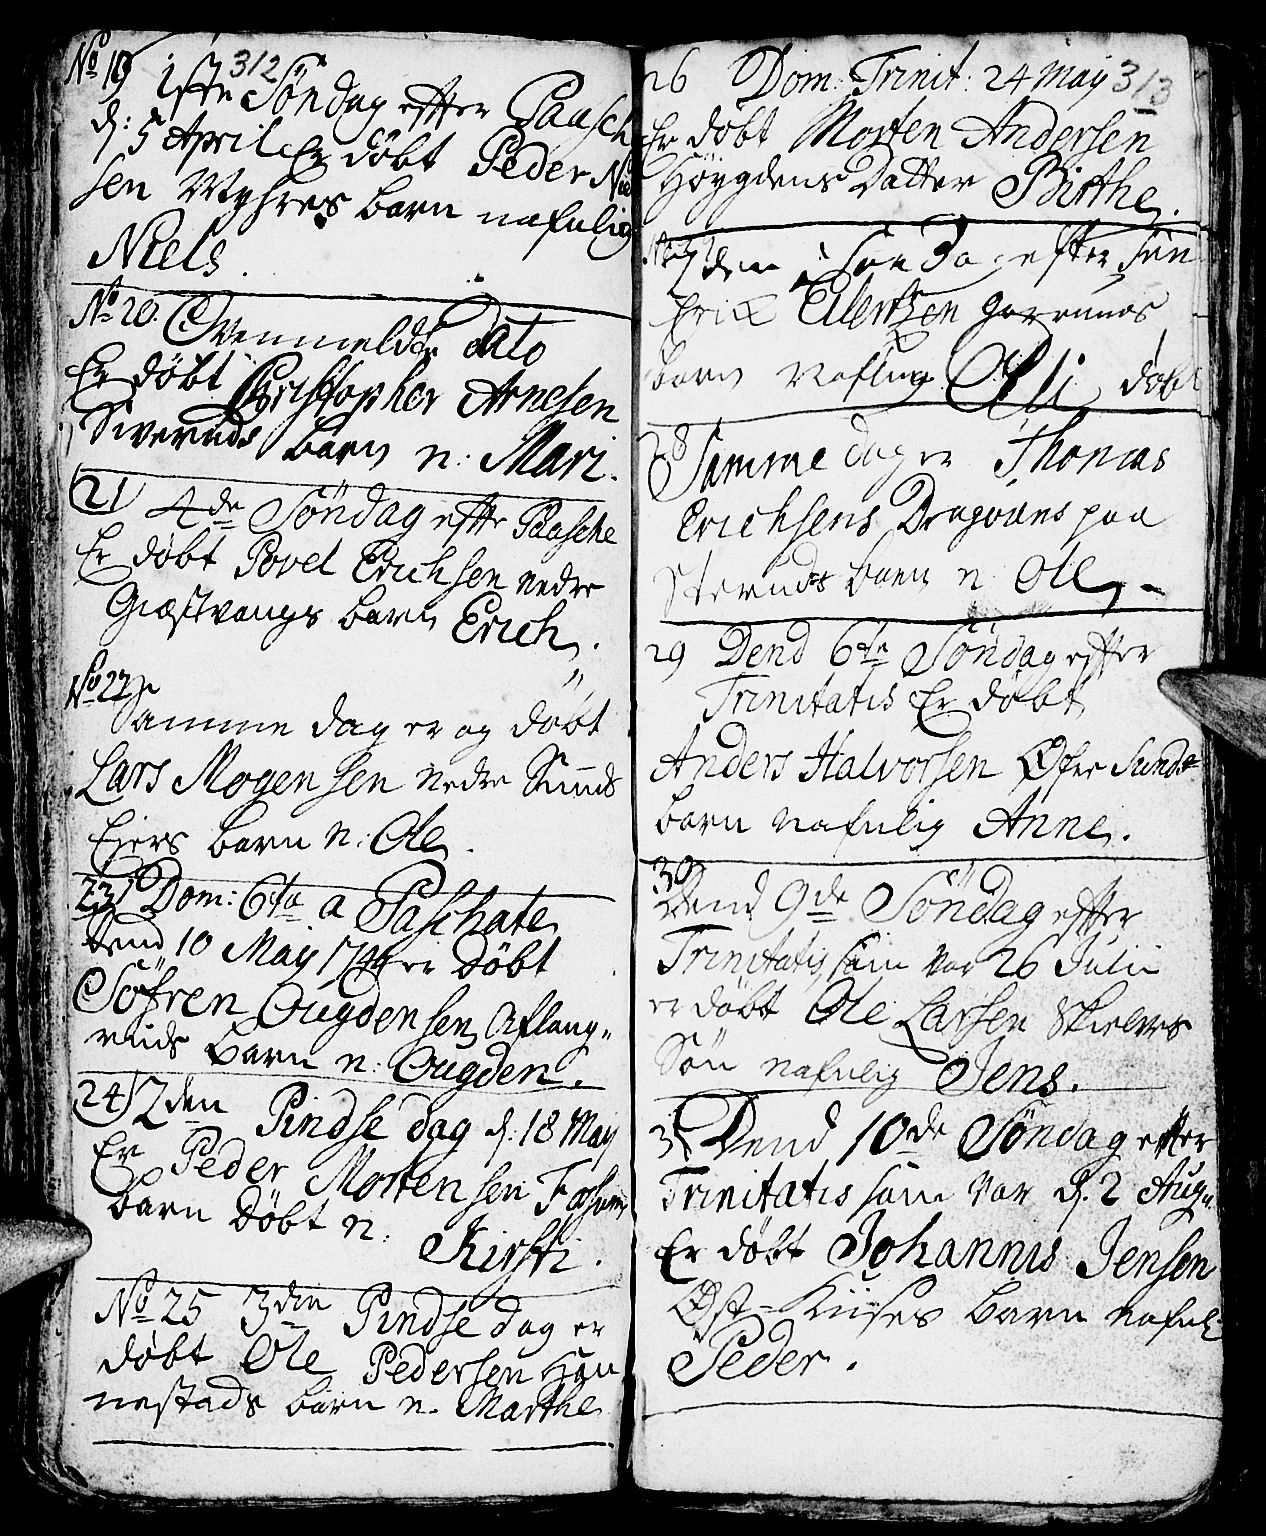 312
No 19 1ste Söndag efter Paasch
d: 5 April Er döbt Peder Niel
sen Myhres barn nafnlig
Niels.
No 20. Ovenmeldte Dato
Er döbt Christopher Arnesen
Siveruds barn n: Mari.
21 4de Söndag efter Paasche
Er döbt Povel Erichsen nedre
Giæstvangs barn Erich.
No 22
Samme dag er og döbt
Lars Mogensen nedre Sunds
Eiers barn n: Ole.
23 Dom: 6ta a Paschate
Dend 10 May er Döbt
Söfren Ougdensen Aslang„
ruds barn n: Ougden.
24 2den Pindse dag d: 18 May
Er Peder Mortensen Fossum
barn Döbt n: Kirsti.
No 25 3die Pindse dag er
döbt Ole Pedersen Hon
nestads barn n. Marthe
313
26 Dom: Trinit: 24 May
Er döbt Morten Andersen
Höygdens Datter Birthe.
Söndag efter
Erick Ellertsen
barn nafnlig Eli döbt
28 Samme dag er Thomas
Erichsens Dragouns paa
Steruds barn n: Ole.
29 Dend 6te Söndag efter
Trinitatis Er döbt
Anders Halvorsen Øfre Sunds
barn nafnlig Anne.
30
Dend 9de Söndag efter
Trinitatis, som var 26 Julii
er döbt Ole Larsen Skielves
Sön nafnlig Jens.
31 Dend 10de Söndag efter
Trinitatis som var d. 2 Aug„
Er döbt Johannis Jensen
Øst-Kiises barn nafnl:
Peder.